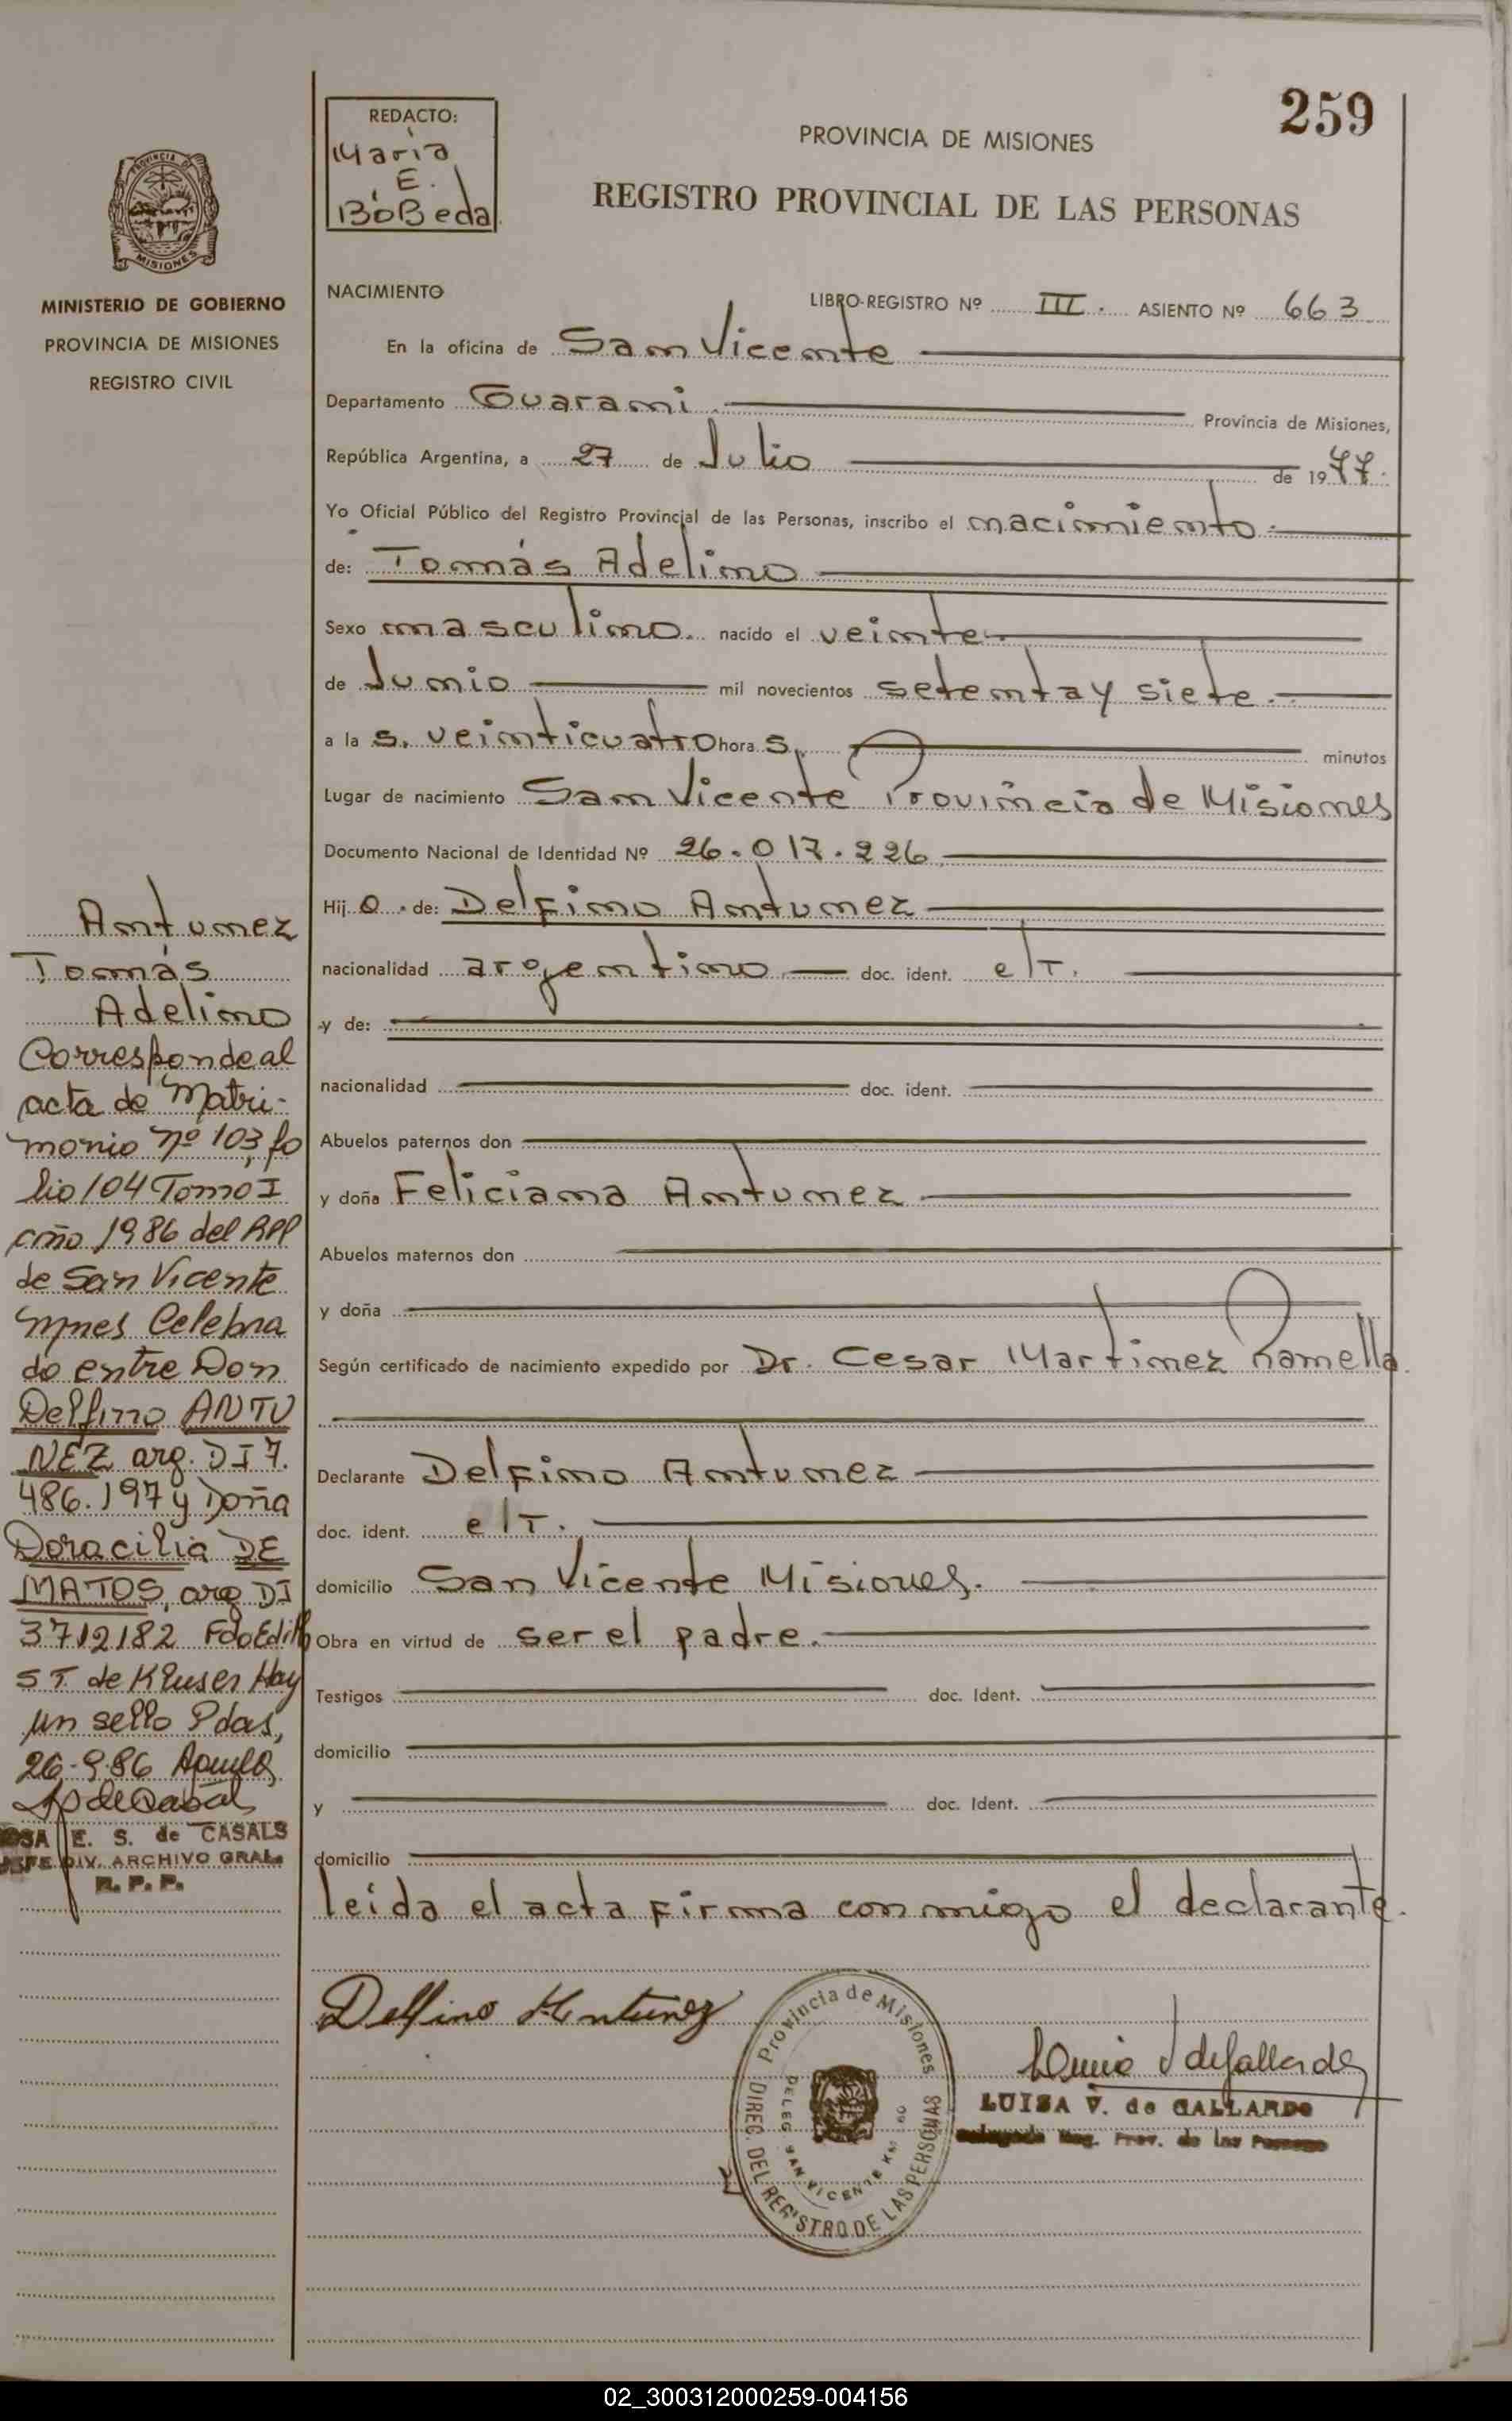 259
REDACTO:
María
E.
BóBeda.
PROVINCIA DE MISIONES
REGISTRO PROVINCIAL DE LAS PERSONAS
PROVINCIA DE
MISIONES
MINISTERIO DE GOBIERNO
PROVINCIA DE MISIONES
REGISTRO CIVIL
NACIMIENTO
LIBRO-REGISTRO Nº III. ASIENTO Nº 663
En la oficina de San Vicente
Departamento Guarani Provincia de Misiones,
República Argentina, a 27 de Julio de 1977.
Yo Oficial Público del Registro Provincial de las Personas, inscribo el nacimiento.
de: Tomás Adelino
Sexo masculino. nacido el veinte.
de Junio mil novecientos setenta y siete.
a las. veinticuatro horas, minutos
Lugar de nacimiento San Vicente Provincia de Misiones
Documento Nacional de Identidad Nº 26.017.226
Hijo. de: Delfino Antunez
nacionalidad argentino doc. ident. e/T.
y de:
nacionalidad doc. ident.
Abuelos paternos don
y doña Feliciana Antunez
Abuelos maternos don
y doña
Según certificado de nacimiento expedido por Dr. Cesar Martinez Ramella.
Declarante Delfino Antunez
doc. ident. e/T.
domicilio San Vicente Misiones.
Obra en virtud de ser el padre.
Testigos doc. Ident.
domicilio
y doc. Ident.
domicilio
leída el acta firma conmigo el declarante.
Delfino Antunez
Provincia de Misiones
DIREC. DEL REGISTRO DE LAS PERSONAS
DELEG. SAN VICENTE Km 60
LUISA V. de GALLARDO
Delegada Reg. Prov. de las Personas
Antunez
Tomás
Adelino
Corresponde al
acta de Matri-
monio nº 103, fo
lio 104 Tomo I
año 1986 del RPP
de San Vicente
Mnes Celebra
do entre Don
Delfino ANTU
NEZ arg. DI 7.
486.197 y Doña
Doracilia DE
MATOS, arg DI
3712182 Fdo Edith
S T. de Kluser Hay
un sello Pdas,
26-9-86
E. S. de CASALS
JEFE DIV. ARCHIVO GRAL.
R. P. P.
02_300312000259-004156